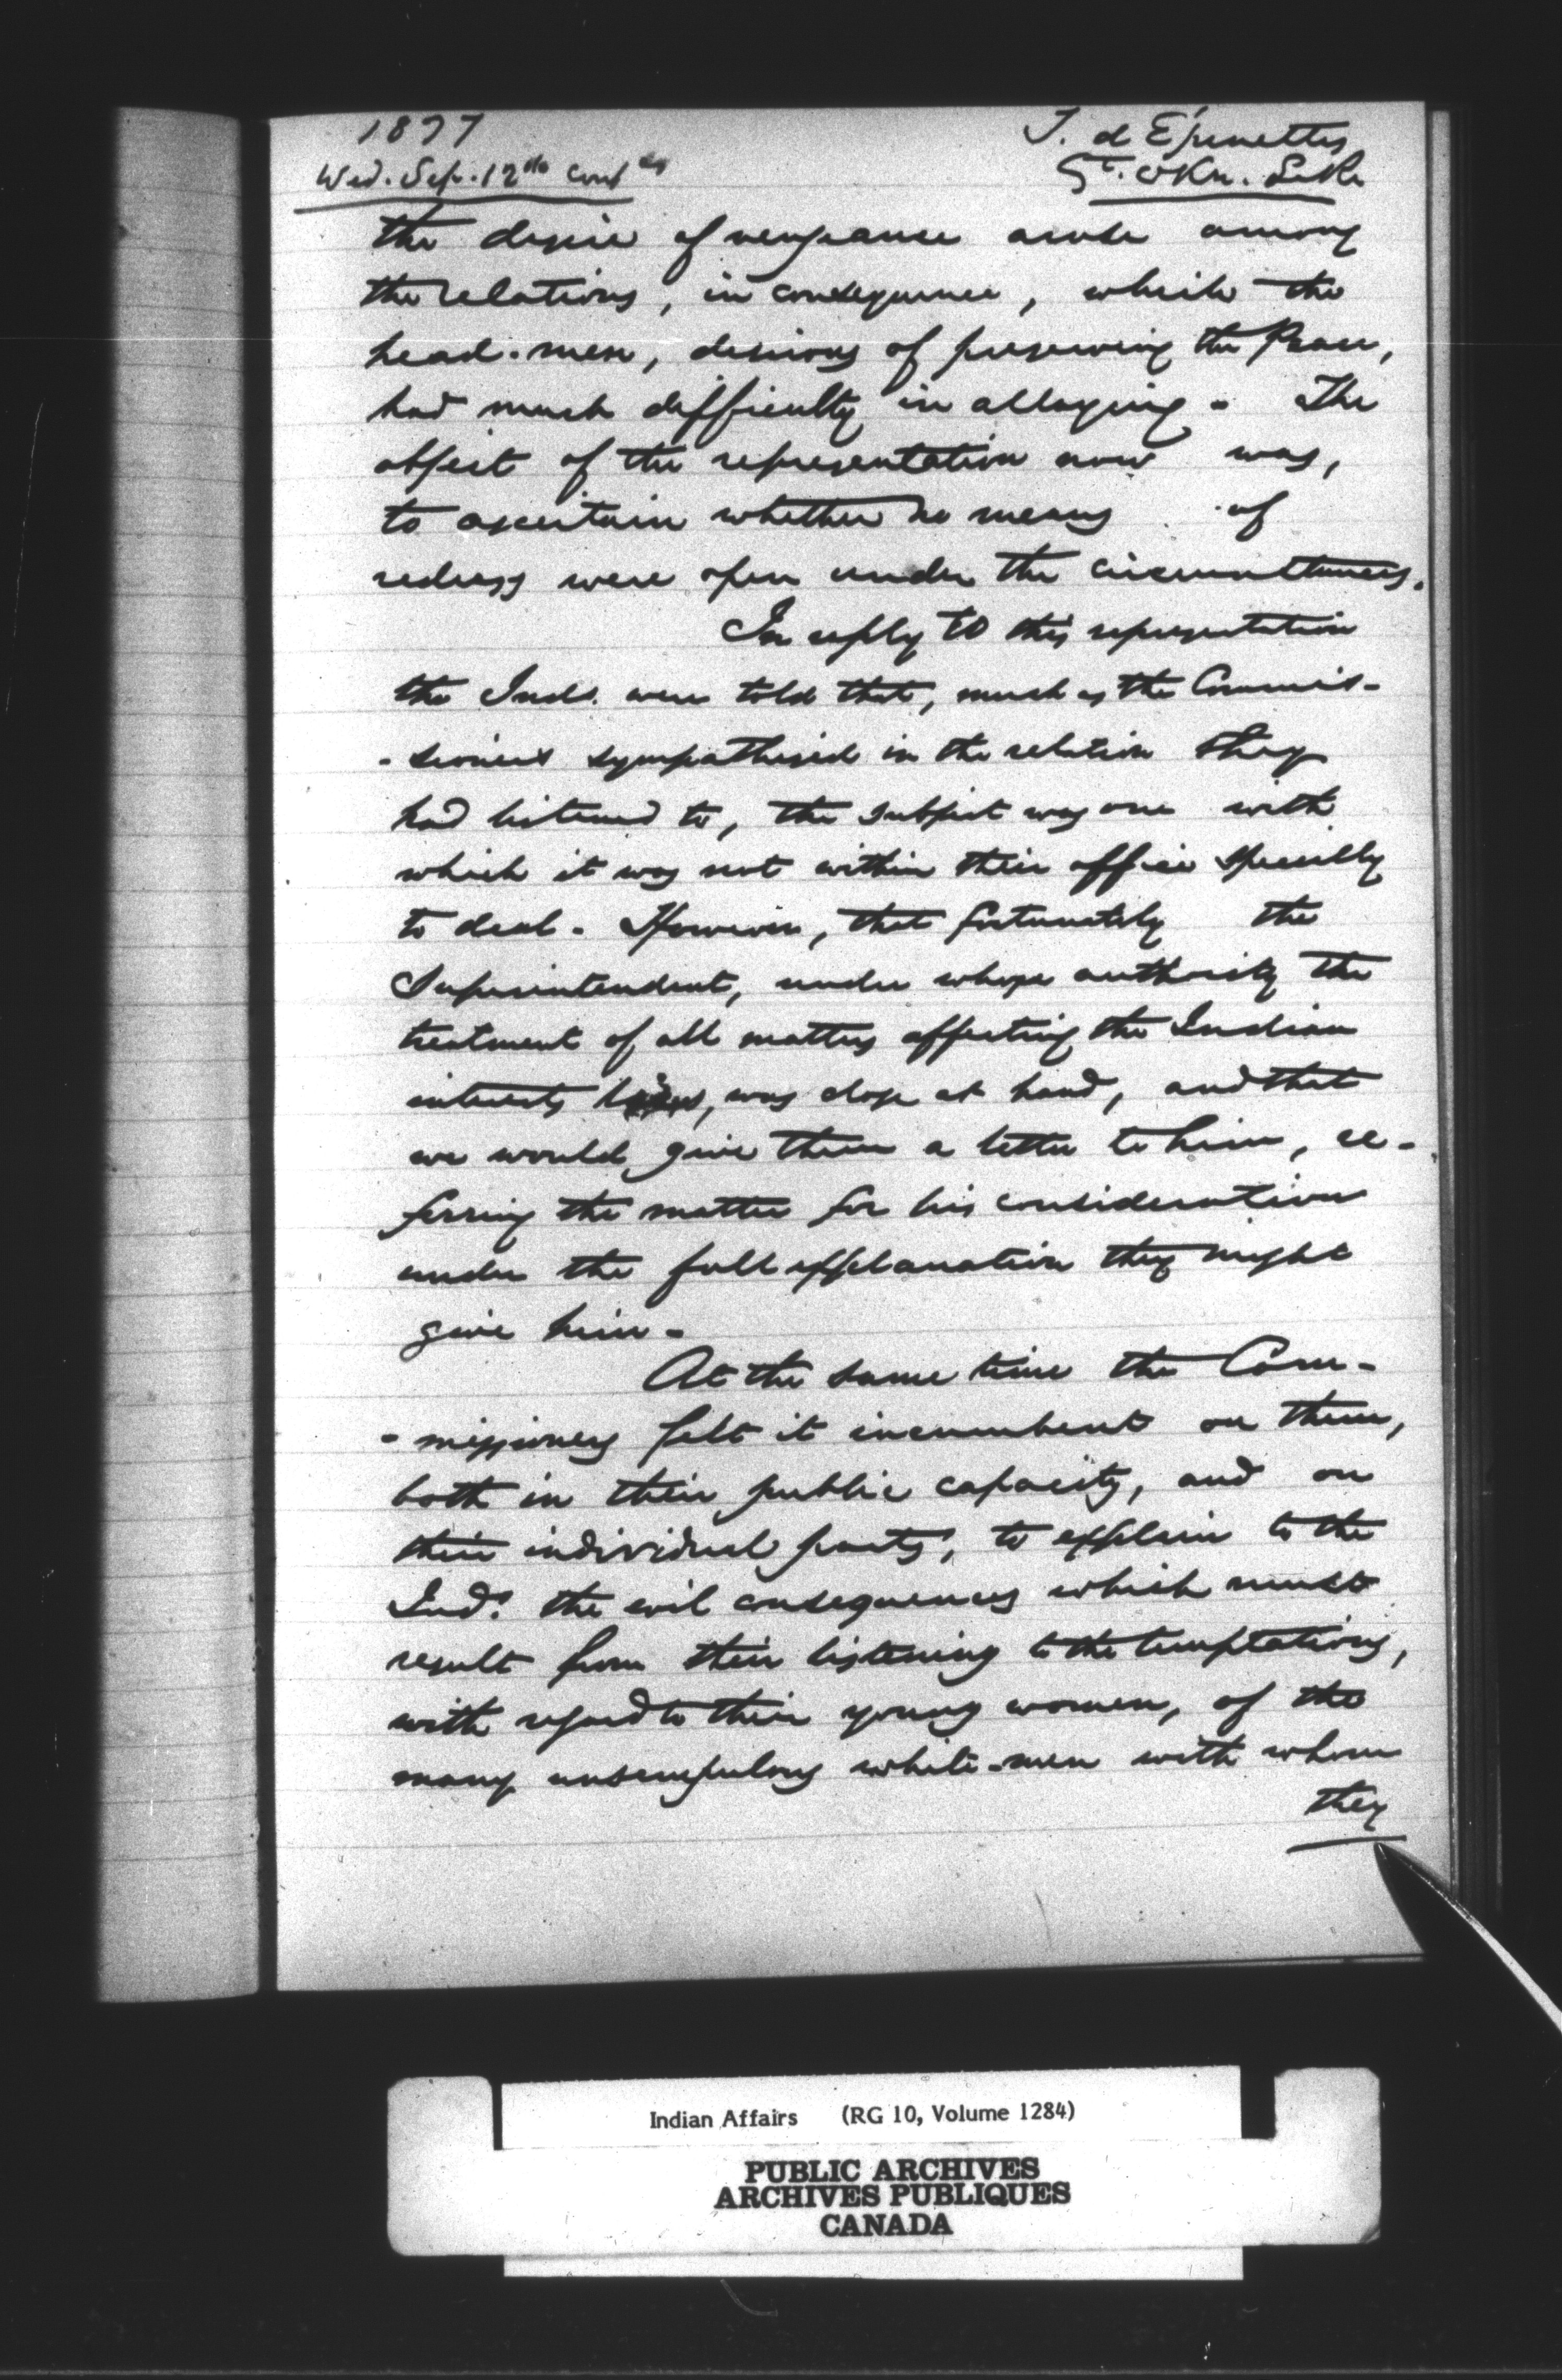 1877
T. d'Épinettes
Wed. Sep. 12th cont'd
Gt. Okn. Lake
the desire of vengeance arose among
the relations, in consequence, which the
head-men, desirous of preserving the Peace,
had much difficulty in allaying. The
object of the representation now was,
to ascertain whether no means of
redress were open under the circumstances.
In reply to this representation
the Inds. were told that, much as the Commis-
-sioners sympathised in the relation they
had listened to, the subject was one with
which it was not within their office specially
to deal. However, that fortunately the
Superintendent, under whose authority the
treatment of all matters affecting the Indian
interests, was close at hand, and that
we would give them a letter to him, re-
ferring the matter for his consideration
under the full explanation they might
give him -
At the same time the Com-
-missioners felt it incumbent on them,
both in their public capacity, and on
their individual parts, to explain to the
Inds. the evil consequences which must
result from their listening to the temptations,
with regard to their young women, of the
many unscrupulous white-men with whom
they
Indian Affairs (RG 10, Volume 1284)
PUBLIC ARCHIVES
ARCHIVES PUBLIQUES
CANADA